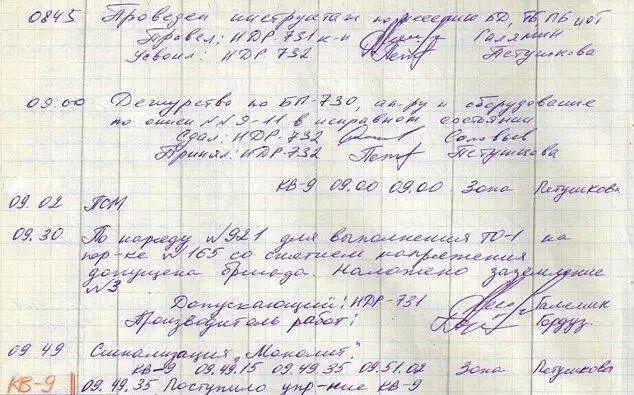 0845 Проведен инструктаж по несению БД, ТБ, ПБ
Провел: НДР 731 к-н Галямин
Усвоил: НДР 732 Петушкова
09.00 Дежурство по БП-730, ап-ру и оборудование
по описи №№ 9-11 в исправном состоянии
Сдал: НДР-732 Соловьев
Принял: НДР-732 Петушкова
КВ-9 09.00 09.00 Зона Петушкова
09.02 ПСМ
09.30 По наряду №921 для выполнения ТО-1 на
№165 со снятием напряжения
допущена бригада. Наложено заземление
№3
Допускающий: НДР-731
Производитель работ: Гордуз
09 49 Сигнализация "Монолит".
КВ-9 09.49.15 09.49.35 09.51.02 Зона Петушкова
КВ-9 09.49.35 Поступило упр-ние КВ-9